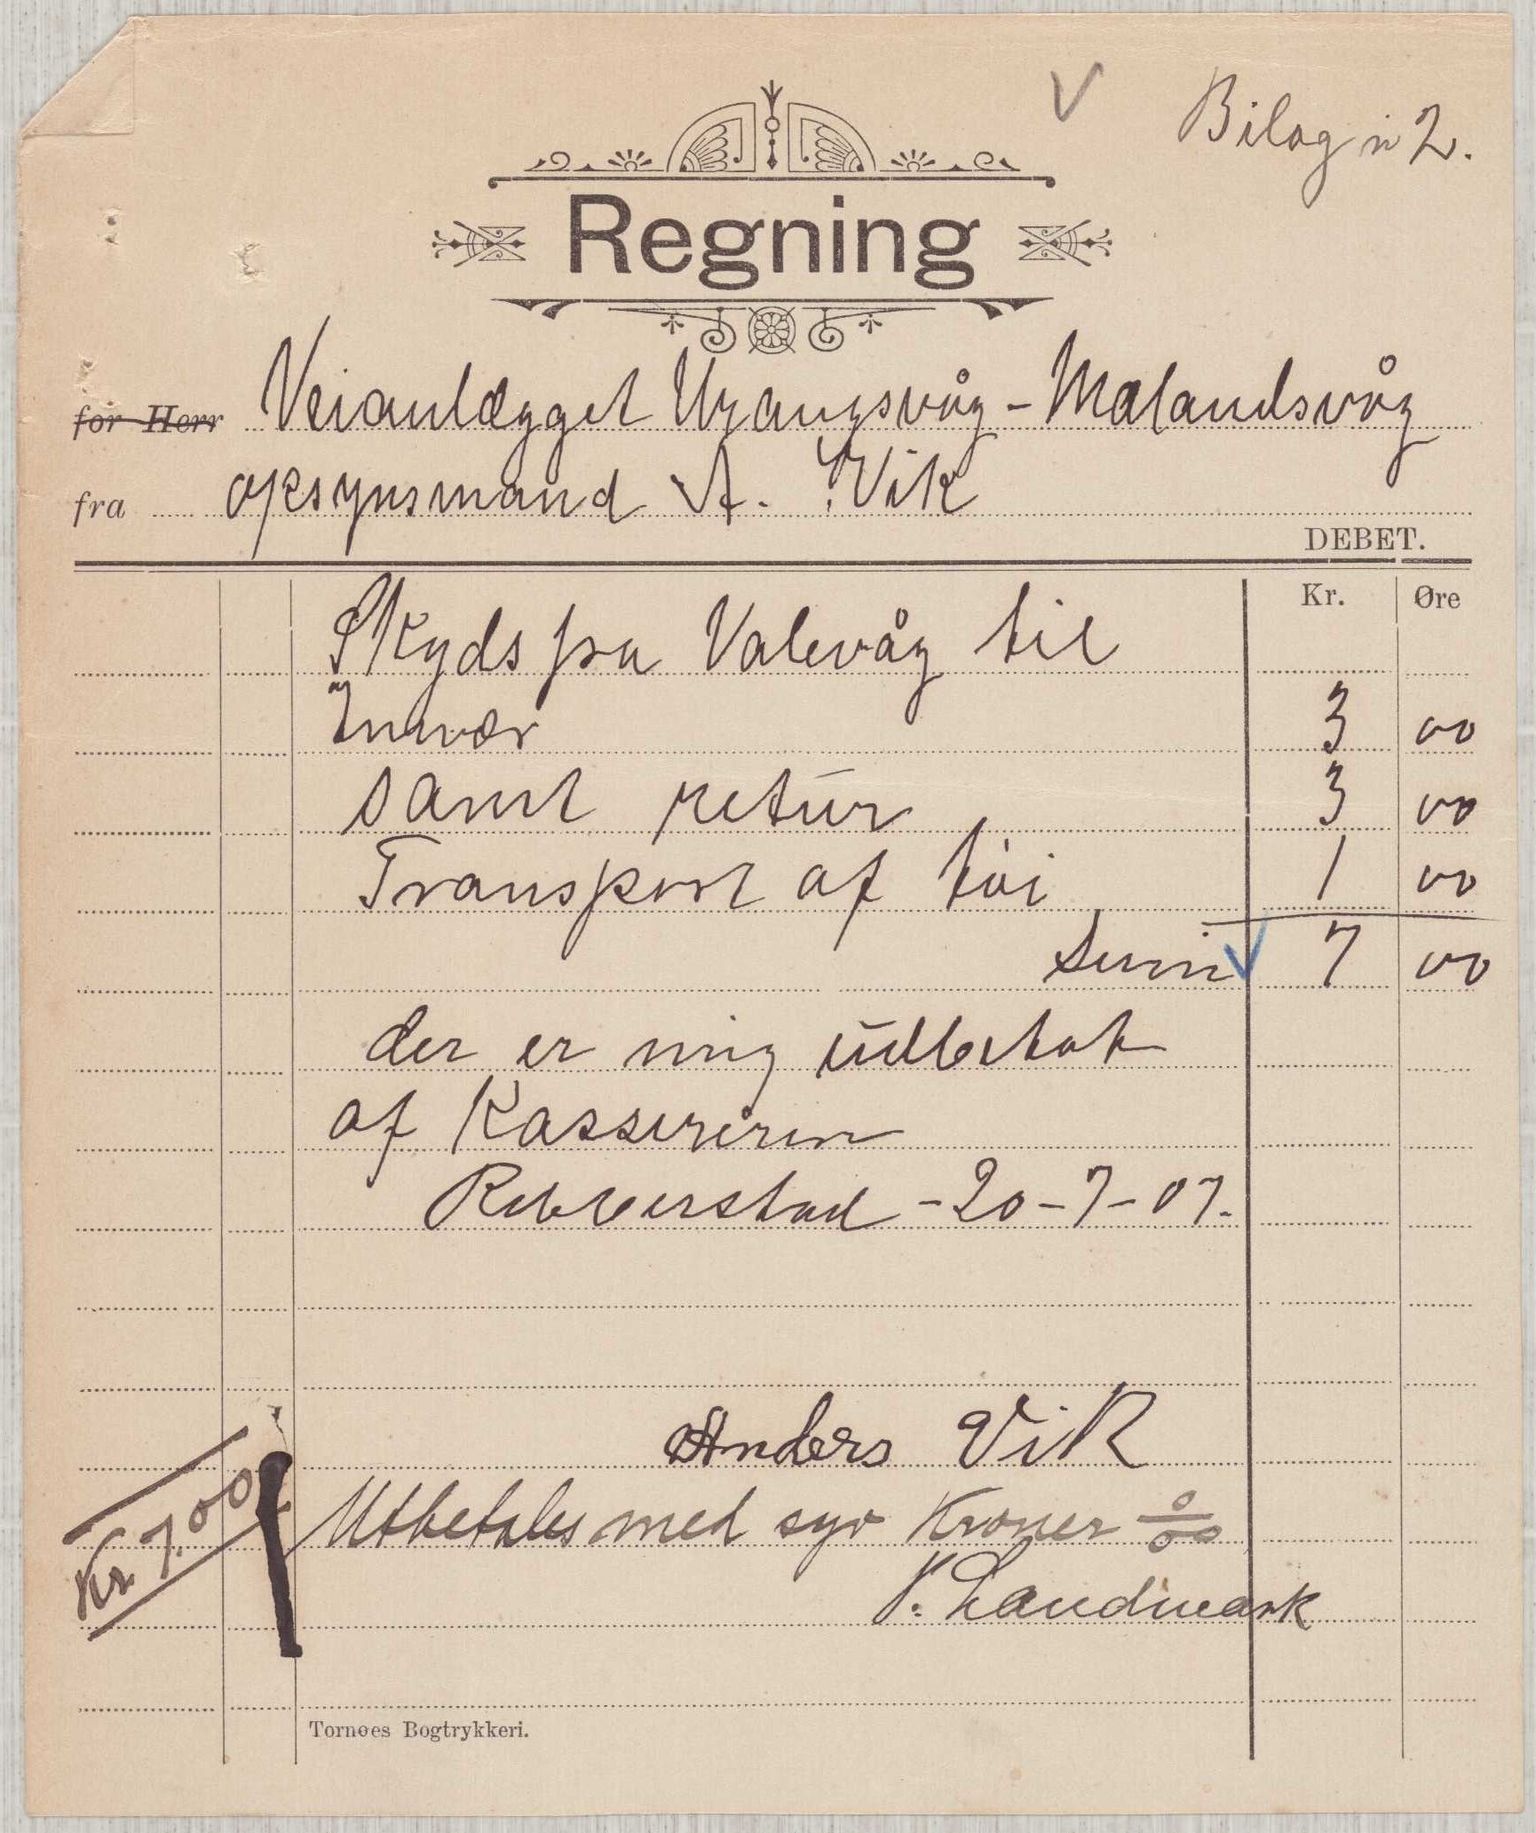 Bilag n 2.
Regning
for Herr Veianlægget Urangsvåg - Malandsvåg
fra opsynsmand A. Vik
DEBET.
Kr. Øre
Skyds fra Valevåg til
Innvær 3 00
samt retur 3 00
Transport af tøi 1 00
Sum 7 00
der er mig udbetalt
af Kassereren
Rubbestad - 20-7-07.
Anders Vik
Kr 7.00
Utbetales med syv Kroner 0/00
V. Landmark
Tornøes Bogtrykkeri.